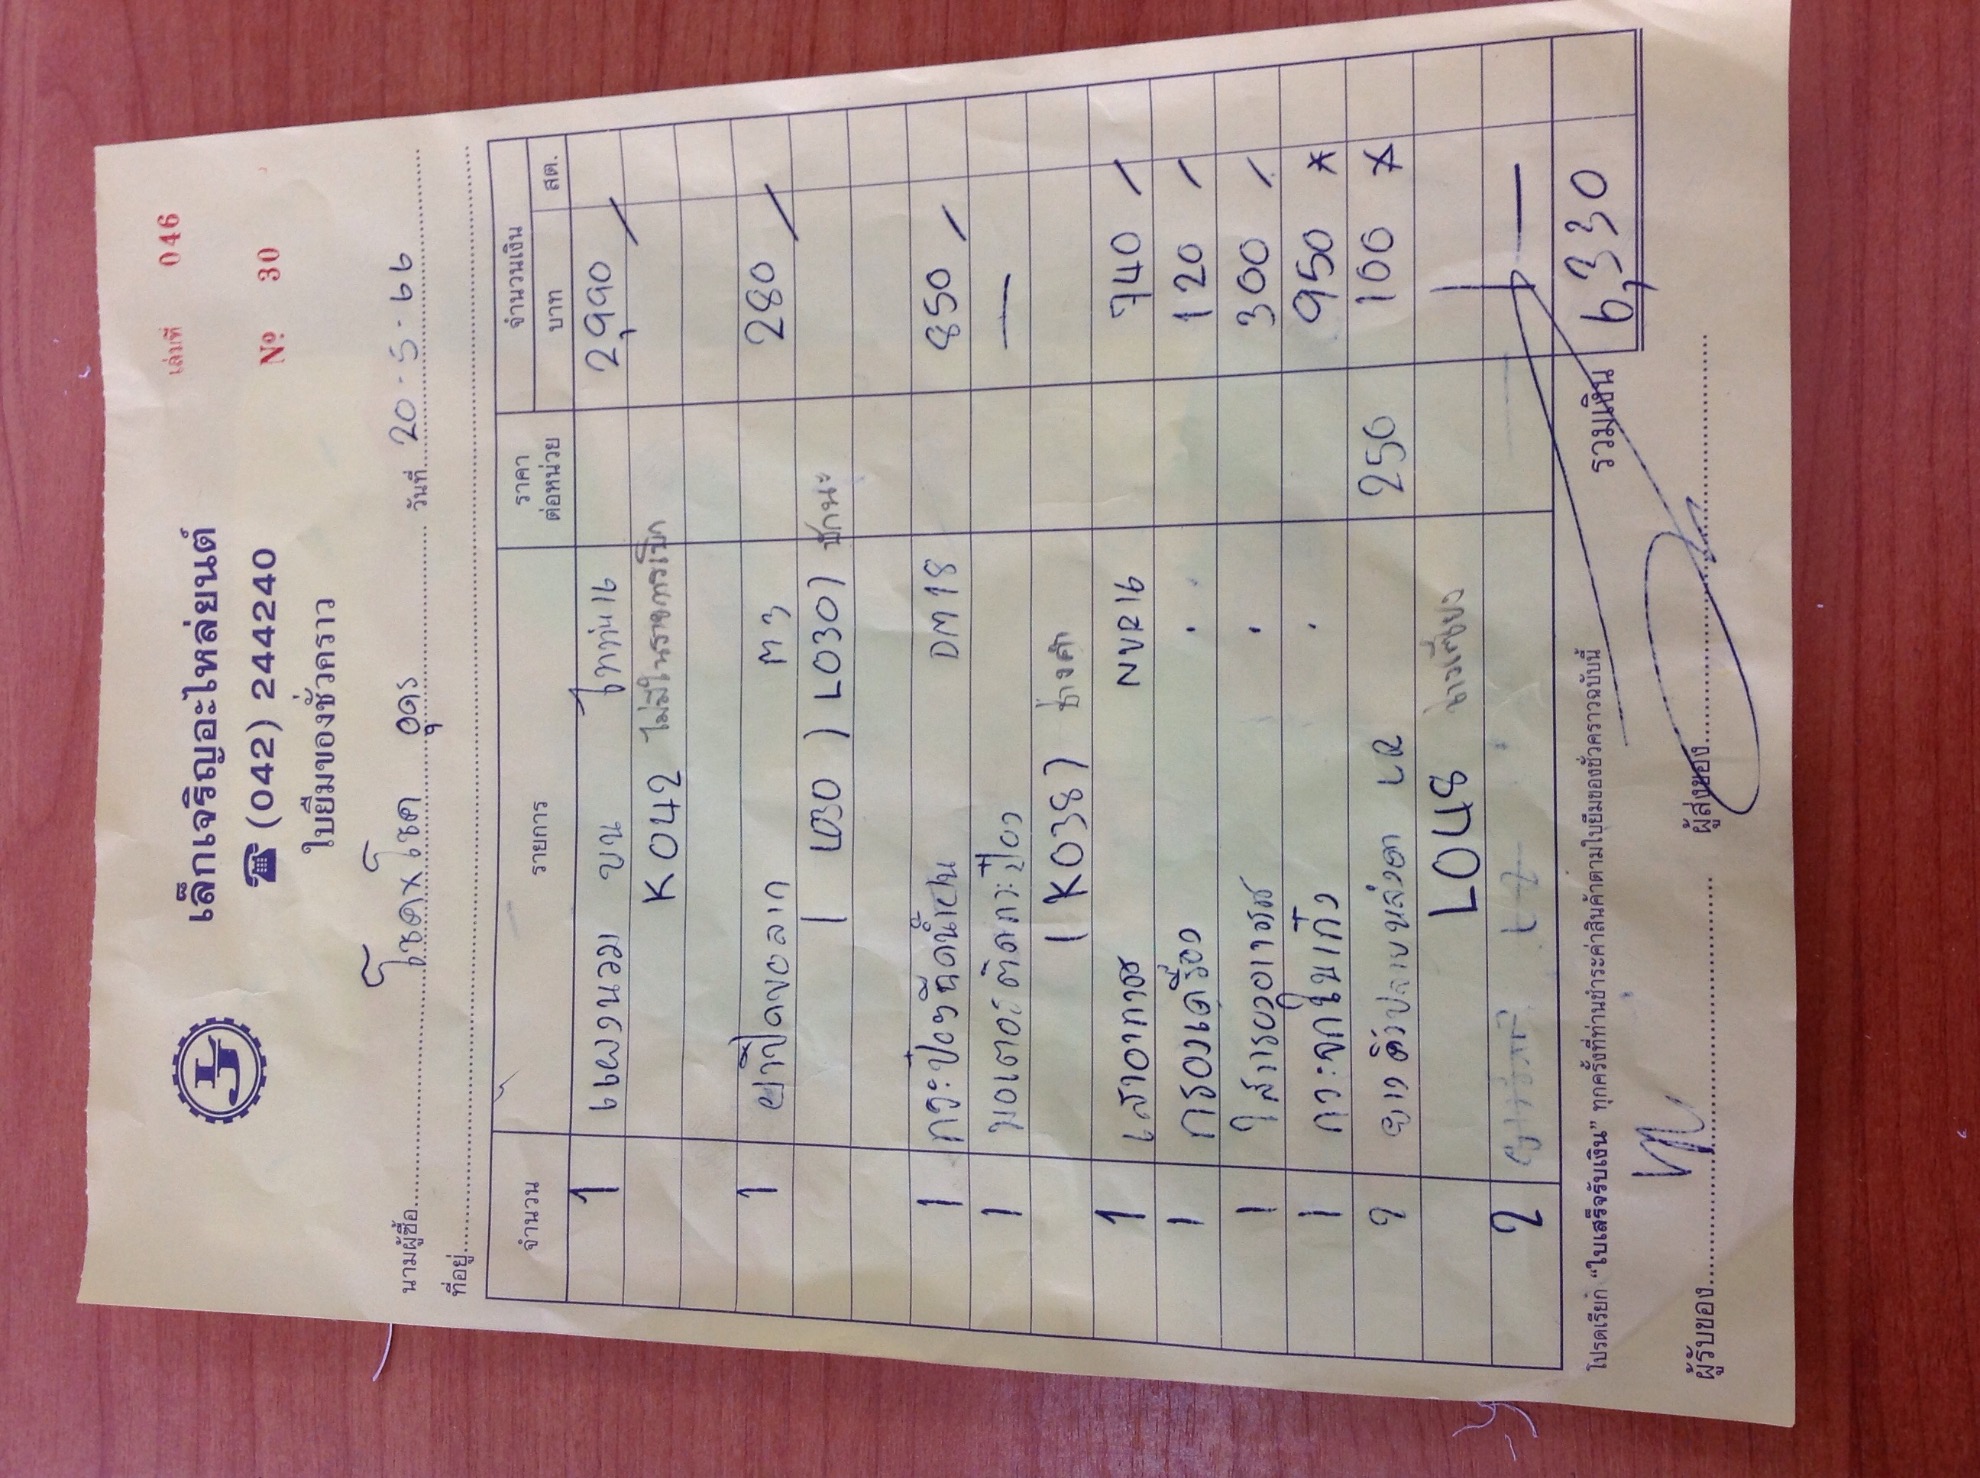 เล่มที่ 046
เล็กเจริญอะไหล่ยนต์
☎ (042) 244240
№ 30
ใบยืมของชั่วคราว
นามผู้ซื้อ โชคxโชค อุดร วันที่ 20-5-66
ที่อยู่
จำนวน รายการ ราคาต่อหน่วย จำนวนเงิน บาท สต.
1 แผงนวม บน ไททัน 2,990 /
K042 ไม่มีใน
1 ยาปิดงอลาก M3 280 /
1 L030 / L030)
1 DM18 850 /
1 มอเตอร์ติดกระป๋อง —
1 K038) ช่างดำ
1 เสาอากาศ NVR16 740 /
1 กรองเครื่อง . 120 /
1 ไส้กรองอากาศ . 300 /
1 กระจกในเก๋ง . 950 *
2 ยาง LR 250 100 *
L048
2 —
รวมเงิน 6,330
โปรดเรียก "ใบเสร็จรับเงิน" ทุกครั้งที่ท่านชำระค่าสินค้าตามใบยืมของชั่วคราวฉบับนี้
ผู้รับของ ผู้ส่งของ